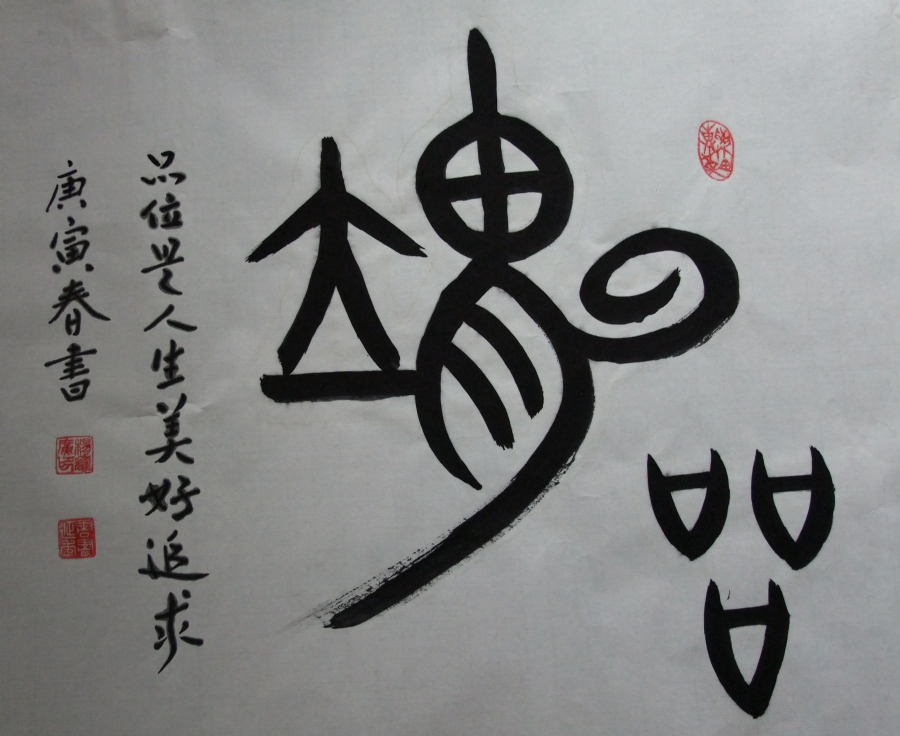 品位
品位是人生美好追求
庚寅春書